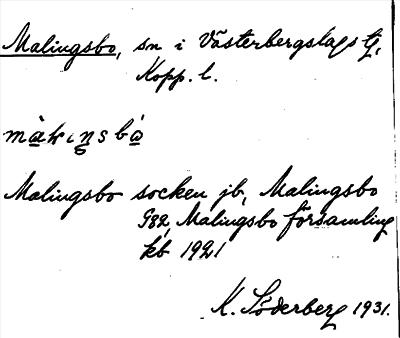 Malingsbo, sn i Västerbergslags tg,
Kopp. l.
màkiṉsbo̱
Malingsbo socken jb, Malingsbo
Malingsbo församling
kb 1921
K. Söderberg 1931.